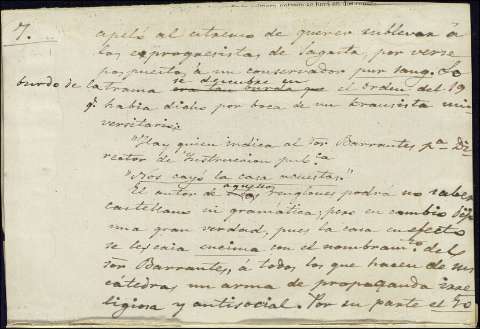 7.
apeló al extremo de querer sublevar á
los exprogresistas de Sagasta, por verse
pospuesto á un conservador pur sang. Lo
burdo de la trama se descubre en el Orden del 19
q.e habia dicho por boca de un krausista uni-
versitario:
"Hay quien indica al Sor Barrantes p.a Di-
rector de Instruccion pub.ca
"Nos cayó la casa acuestas."
El autor de aquellos renglones podrá no saber
castellano ni gramática; pero en cambio dijo
una gran verdad, pues la casa en efecto
se les caia encima con el nombram.to del
Sor Barrantes, á todos los que hacen de sus
cátedras un arma de propaganda irre-
ligiosa y antisocial. Por su parte el